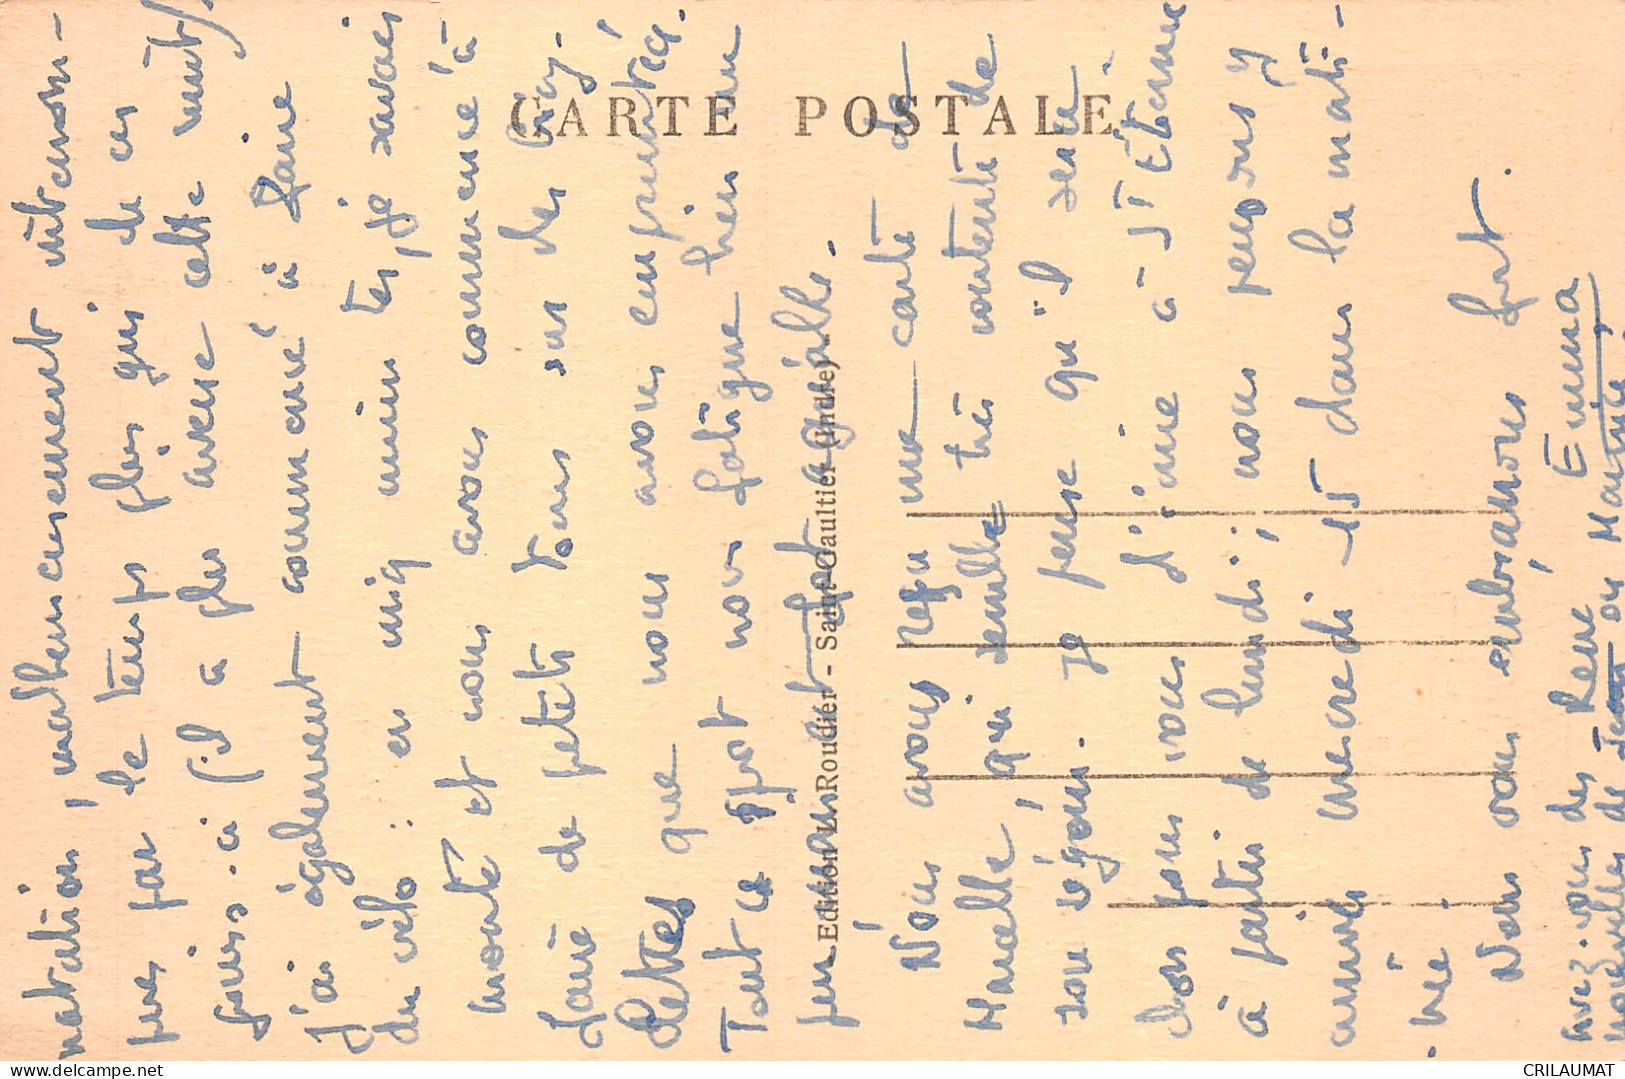 CARTE POSTALE
Edition Roudier - Saint-Gaultier (Indre)
natation, malheureusement interrom-
pue par le temps plus gris de ces
jours-ci (il a plu averse cette nuit).
J'ai également commencé à faire
du vélo : en cinq minutes, je savais
monté et nous avons commencé à
faire de petits tours sur des bicy-
clettes que nous avons empruntées.
Tout ce sport nous fatigue bien un
peu mais c'est fort agréable.
Nous avons reçu une carte de
Marcelle, qui semble très contente de
son séjour. Je pense qu'il sera
bon pour vous d'aller à St Etienne
à partir de lundi ; nous pensons y
arriver mercredi 15 dans la mati-
née.
Nous vous embrassons fort.
Emma
Avez-vous des
nouvelles de René,
de Jean ou Maurice ?
CRILAUMAT